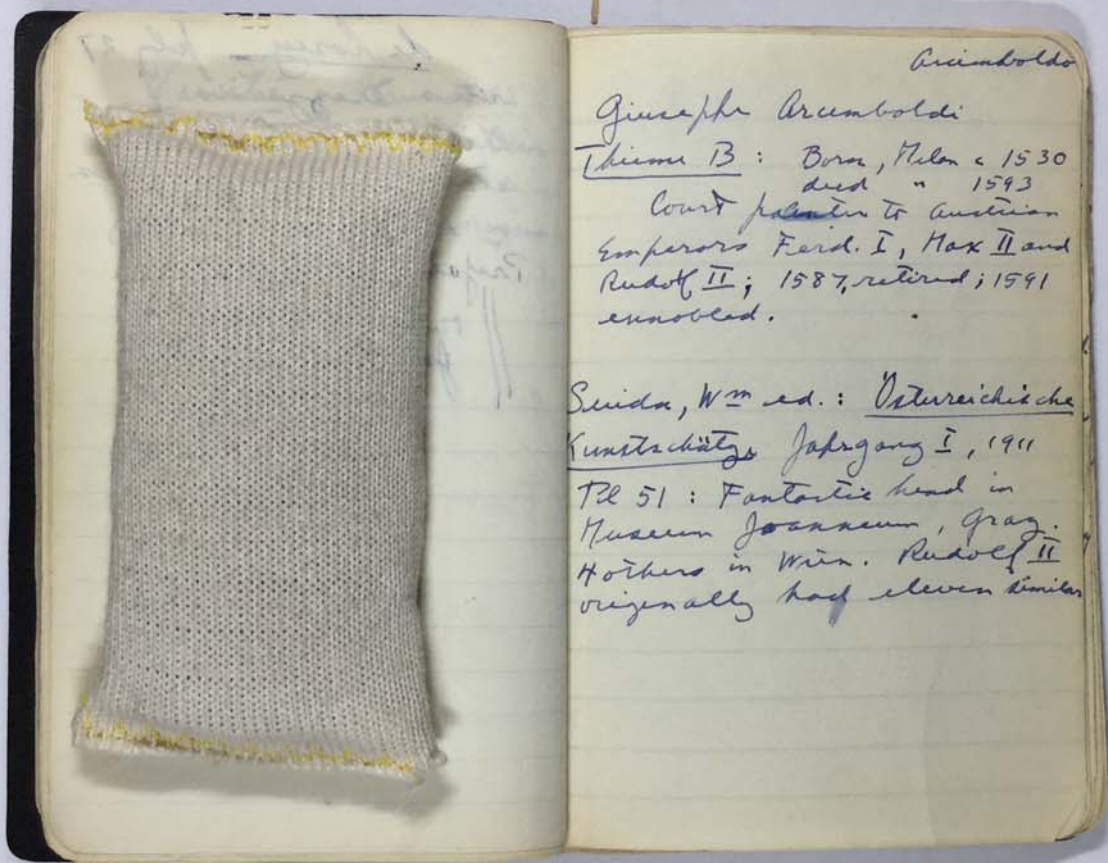 Arcimboldo
Giuseppe Arcimboldi
Thieme B : Born, Milan c 1530
died " 1593
Court painter to Austrian
Emperors Ferd. I, Max II and
Rudolf II ; 1587, retired ; 1591
ennobled.
Suida, Wm ed. : Österreichische
Kunstschätze Jahrgang I, 1911
Pl 51 : Fantastic head in
Museum Joanneum, Graz.
4 others in Wien. Rudolf II
originally had eleven similar